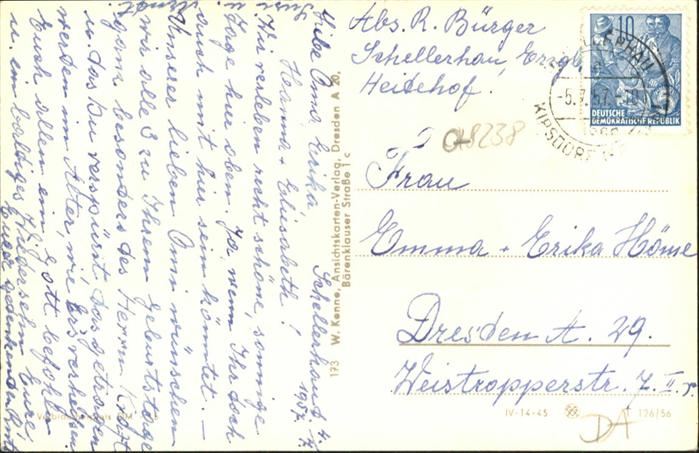 Abs. R. Bürger
Schellerhau, Erzgb.
Heidehof.
10
DEUTSCHE
DEMOKRATISCHE REPUBLIK
-5.7.57.-
KIPSDORF
CH8238
Frau
Emma + Erika Höme
Dresden A. 29.
Weistropperstr. 7. II. r.
173 W. Kenne, Ansichtskarten-Verlag, Dresden A 20,
Bärenklauser Straße 1 c
IV-14-45
126/56
DA
Schellerhau, d. 4. 7.
1957.
Liebe Oma, Erika
Hanna + Elisabeth!
Wir verleben recht schöne, sonnige
Tage hier oben. Ja, wenn Ihr doch
auch mit hier sein könntet. –
Unserer lieben Omi wünschen
wir alle 3 zu Ihrem Geburtstage
ganz besonders des Herrn Kraft
u. das Du verspürst, das getragen
werden im Alter wie Er's verheißen.
Euch allen ein Gott befohlen
u. ein baldiges Wiedersehn. Eure
Euch gedenkenden